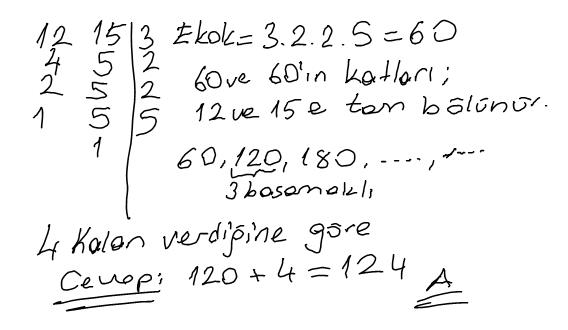 12 15 | 3 Ekok = 3.2.2.5 = 60
4 5 | 2
2 5 | 2 60 ve 60'ın katları;
1 5 | 5 12 ve 15 e tam bölünür.
1
60, 120, 180, ...., ....
3 basamaklı
4 Kalan verdiğine göre
Cevap: 120 + 4 = 124 A